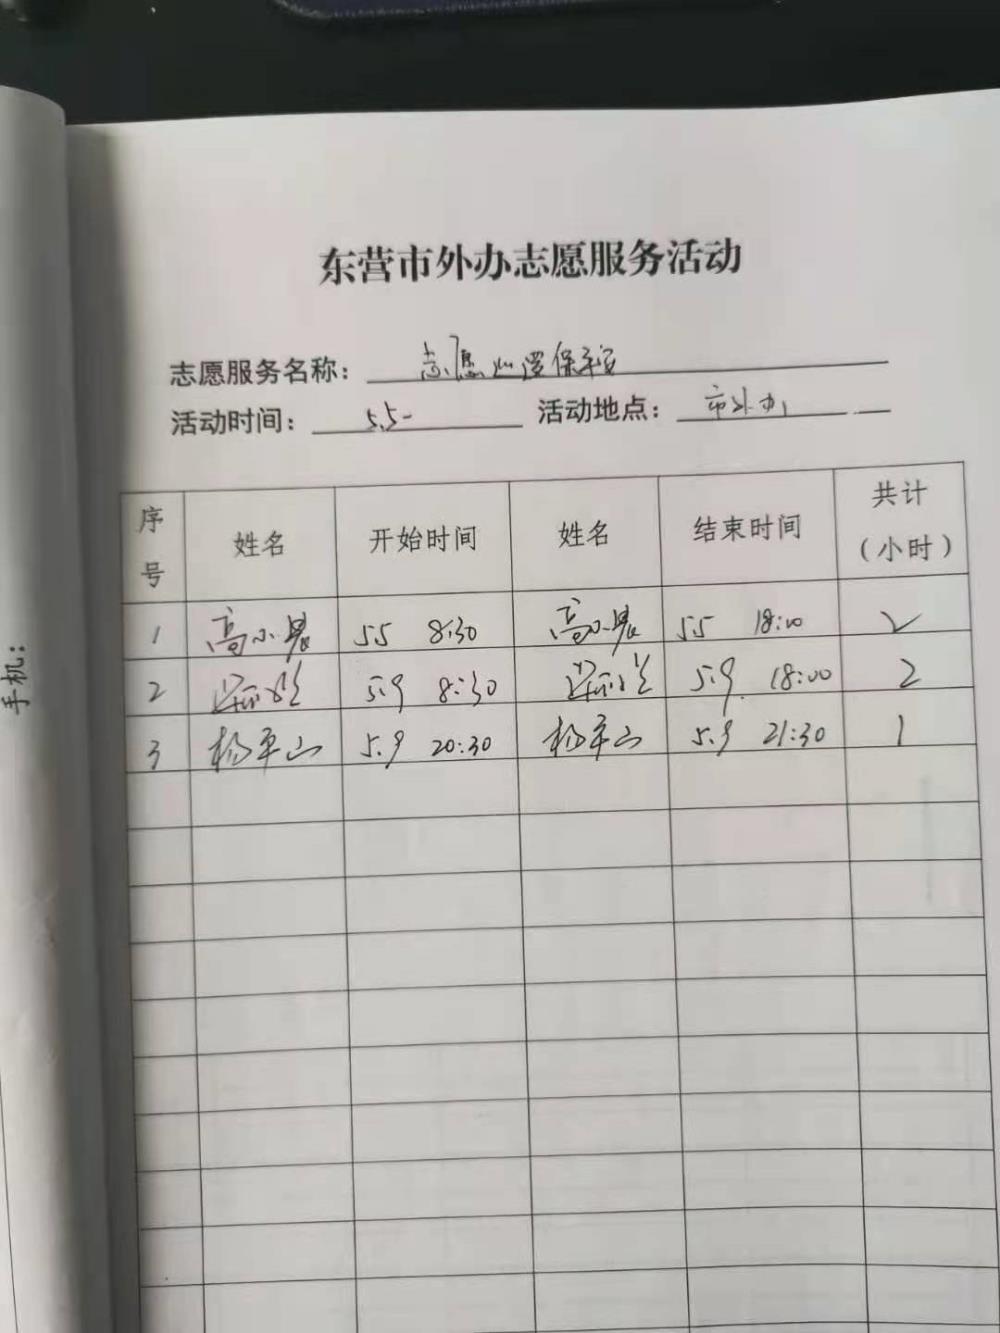 东营市外办志愿服务活动
志愿服务名称： 志愿巡逻保平安
活动时间： 5.5- 活动地点： 市外办
序号 姓名 开始时间 姓名 结束时间 共计（小时）
1 高小晨 5.5 8:30 高小晨 5.5 18:00 2
2 5.9 8:30 5.9 18:00 2
3 杨平山 5.9 20:30 杨平山 5.9 21:30 1
手机：